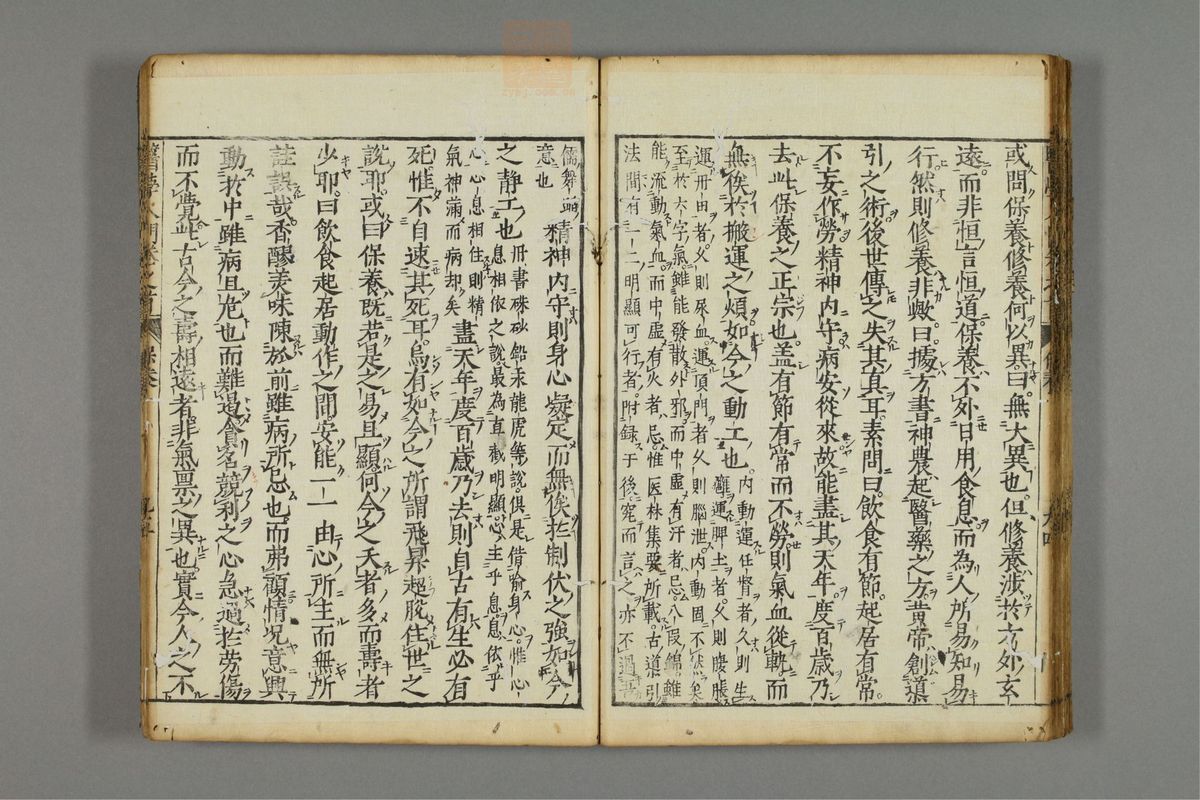 或問保養修養何以異曰無大異也但修養涉於方外玄
遠而非恒言恒道保養不外日用食息而為人所易知易
行然則修養非歟曰據方書神農起醫藥之方黃帝創導
引之術後世傳之失其真耳素問曰飲食有節起居有常
不妄作勞精神內守病安從來故能盡其天年度百歲乃
去此保養之正宗也盖有節有常而不勞則氣血從軌而
無俟於搬運之煩如今之動工也
內動運任督者久則生
癰運脾土者久則慶脹
運丹田者久則尿血運頂門者久則腦泄內動固不然矣
至於六字氣雖能發散外邪而中虛有汗者忌八段錦雖
能流動氣血而中虛有火者忌惟医林集要所載古道引
法間有一二明顯可行者附録于後究而言之亦不過
儒舞蹈
意也
精神內守則身心凝定而無俟於制伏之強如今
之靜工也
丹書硃砂鉛汞龍虎等說俱是借喻身心惟心
息相依之說最為直截明顯心主乎息息依乎
心心息相住則精
氣神滿而病却矣
盡天年度百歲乃去則自古有生必有
死惟不自速其死耳烏有如今之所謂飛昇超脫住世之
說耶或曰保養既若是之易且顯何今之夭者多而壽者
少耶曰飲食起居動作之間安能一一由心所主而無所
詿誤哉香醪美味陳於前雖病所忌也而弗顧情況意興
動於中雖病且危也而難遏貪名競利之心急過於勞傷
而不覺此古今之壽相遠者非氣禀之異也實今人之不
保養